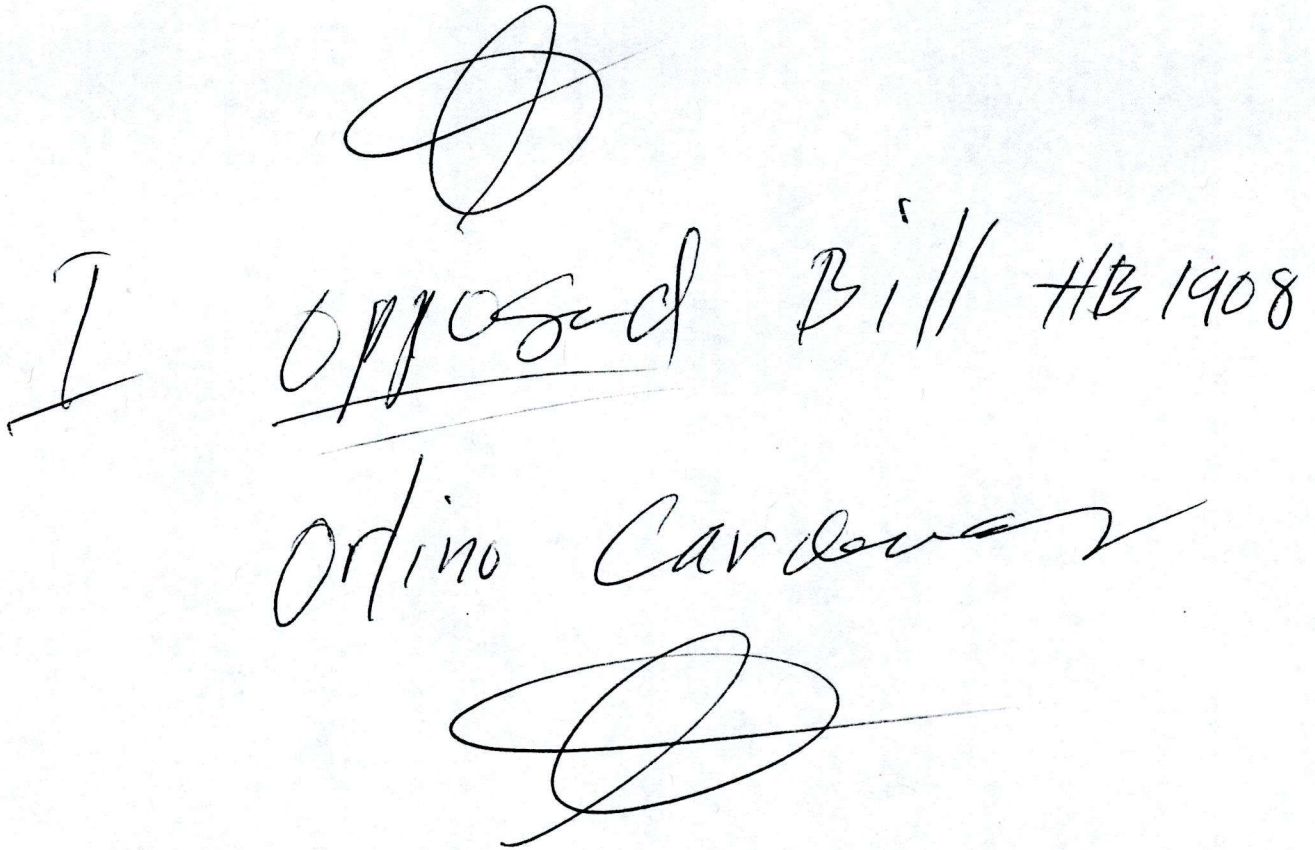 I opposed Bill HB 1908
Orlino Cardenas